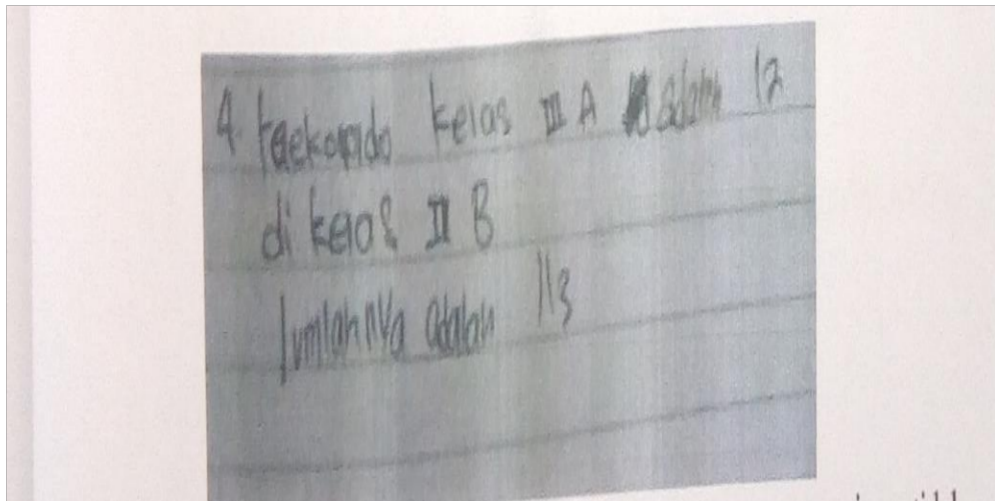 4. taekondo kelas III A adalah 12
di kelas II B
Jumlahnya adalah 113